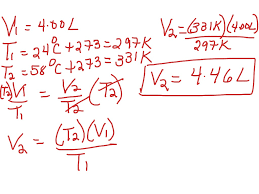 V₁ = 4.00L
T₁ = 24°C + 273 = 297K
T₂ = 58°C + 273 = 331K
(T₂)V₁/T₁ = V₂/T₂ (T₂)
V₂ = (T₂)(V₁)/T₁
V₂ = (331K)(4.00L)/297K
V₂ = 4.46L